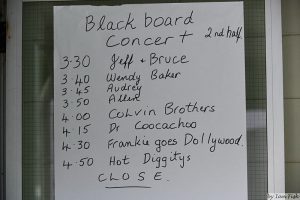 Blackboard
Concert 2nd half
3.30 Jeff + Bruce
3.40 Wendy Baker
3.45 Audrey
3.50 Allen
4.00 Colvin Brothers
4.15 Dr Coocachoo
4.30 Frankie goes Dollywood.
4.50 Hot Diggitys
CLOSE.
by Iain Fisk